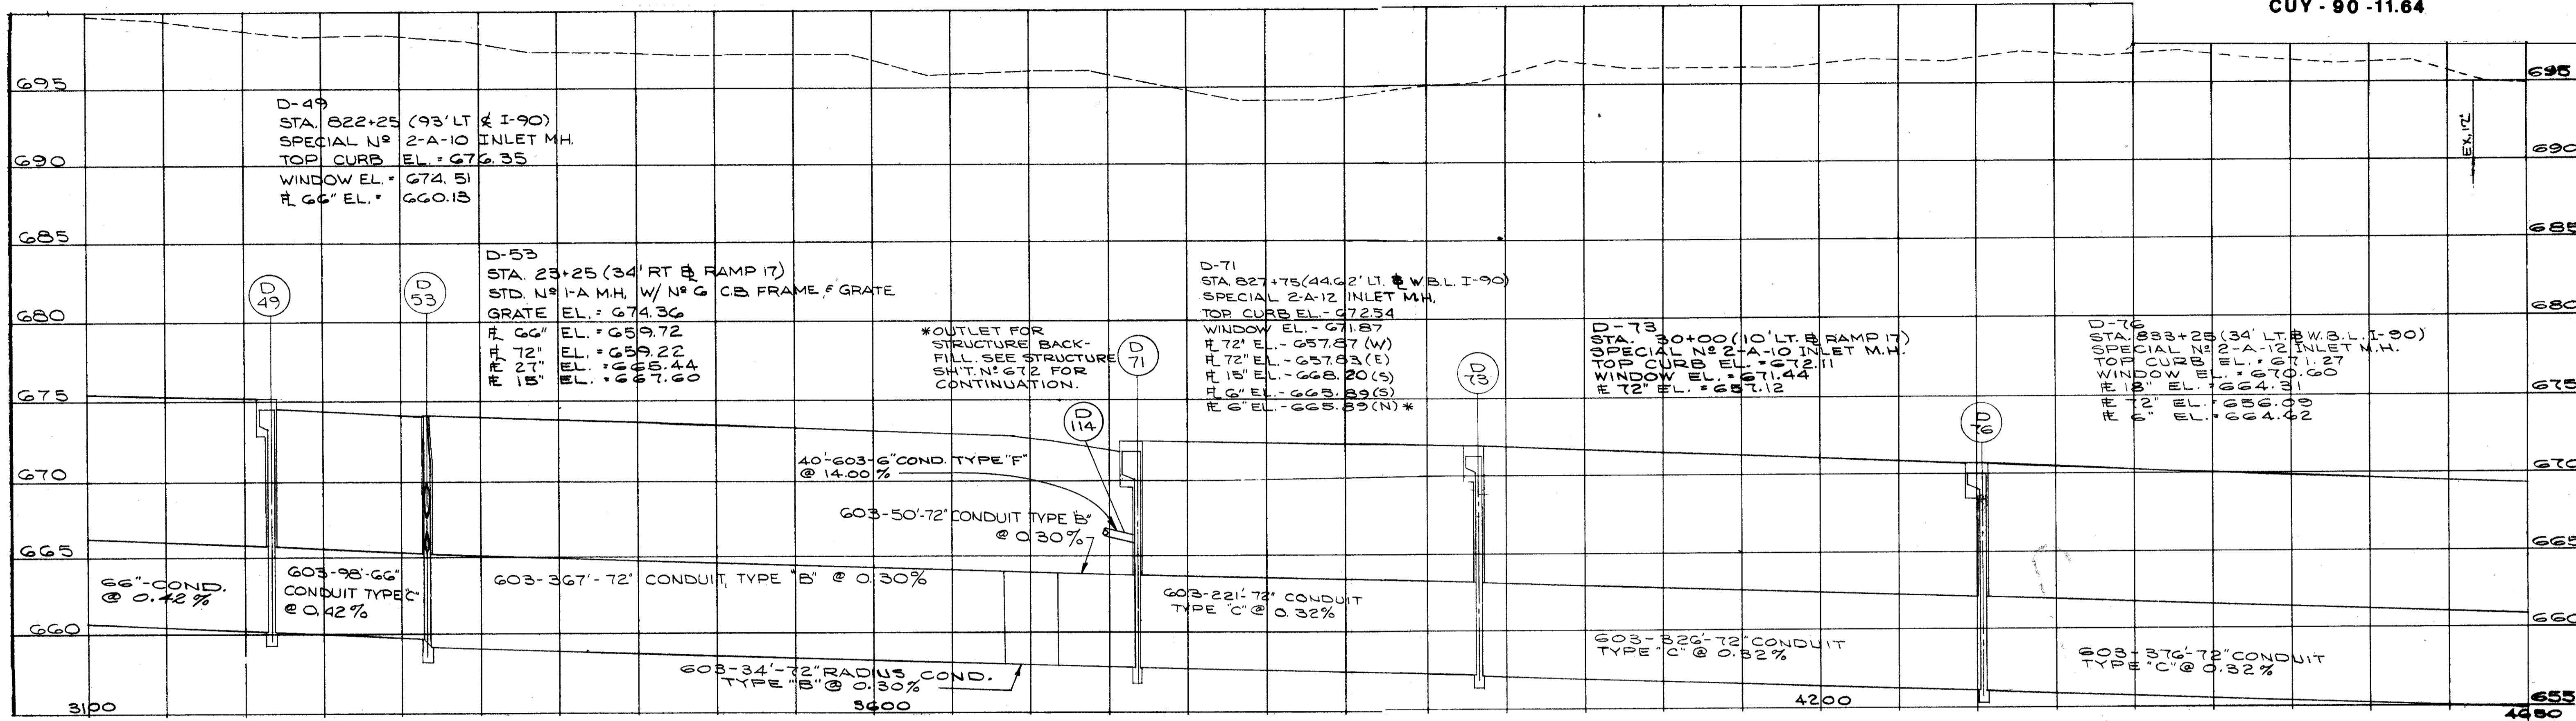 CUY - 90 -11.64
695
690
685
680
675
670
665
660
D-49
STA. 822+25 (93' LT ℄ I-90)
SPECIAL Nº 2-A-10 INLET M.H.
TOP CURB EL. = 676.35
WINDOW EL. = 674.51
℄ 66" EL. = 660.13
D
49
D
53
D-53
STA. 23+25 (34' RT ℄ RAMP 17)
STD. Nº 1-A M.H. W/ Nº 6 C.B. FRAME & GRATE
GRATE EL. = 674.36
℄ 66" EL. = 659.72
℄ 72" EL. = 659.22
℄ 27" EL. = 665.44
℄ 15" EL. = 667.60
*OUTLET FOR
STRUCTURE BACK-
FILL. SEE STRUCTURE
SH'T. Nº 672 FOR
CONTINUATION.
D
71
D
114
D-71
STA. 827+75 (44.62' LT. ℄ W.B.L. I-90)
SPECIAL 2-A-12 INLET M.H.
TOP CURB EL. - 672.54
WINDOW EL. - 671.87
℄ 72" EL. - 657.87 (W)
℄ 72" EL. - 657.83 (E)
℄ 15" EL. - 668.20 (S)
℄ 6" EL. - 665.89 (S)
℄ 6" EL. - 665.89 (N) *
D
73
D-73
STA. 30+00 (10' LT. ℄ RAMP 17)
SPECIAL Nº 2-A-10 INLET M.H.
TOP CURB EL. = 672.11
WINDOW EL. = 671.44
℄ 72" EL. = 657.12
D
76
D-76
STA. 833+25 (34' LT. ℄ W.B.L. I-90)
SPECIAL Nº 2-A-12 INLET M.H.
TOP CURB EL. = 671.27
WINDOW EL. = 670.60
℄ 18" EL. = 664.31
℄ 72" EL. = 656.09
℄ 6" EL. = 664.62
EX. 12"
40'-603-6" COND. TYPE "F"
@ 14.00%
603-50'-72" CONDUIT TYPE "B"
@ 0.30%
66"-COND.
@ 0.42%
603-98'-66"
CONDUIT TYPE "C"
@ 0.42%
603-367'-72" CONDUIT, TYPE "B" @ 0.30%
603-34'-72" RADIUS COND.
TYPE "B" @ 0.30%
603-221'-72" CONDUIT
TYPE "C" @ 0.32%
603-326'-72" CONDUIT
TYPE "C" @ 0.32%
603-376'-72" CONDUIT
TYPE "C" @ 0.32%
695
690
685
680
675
670
665
660
655
3100
3600
4200
4650